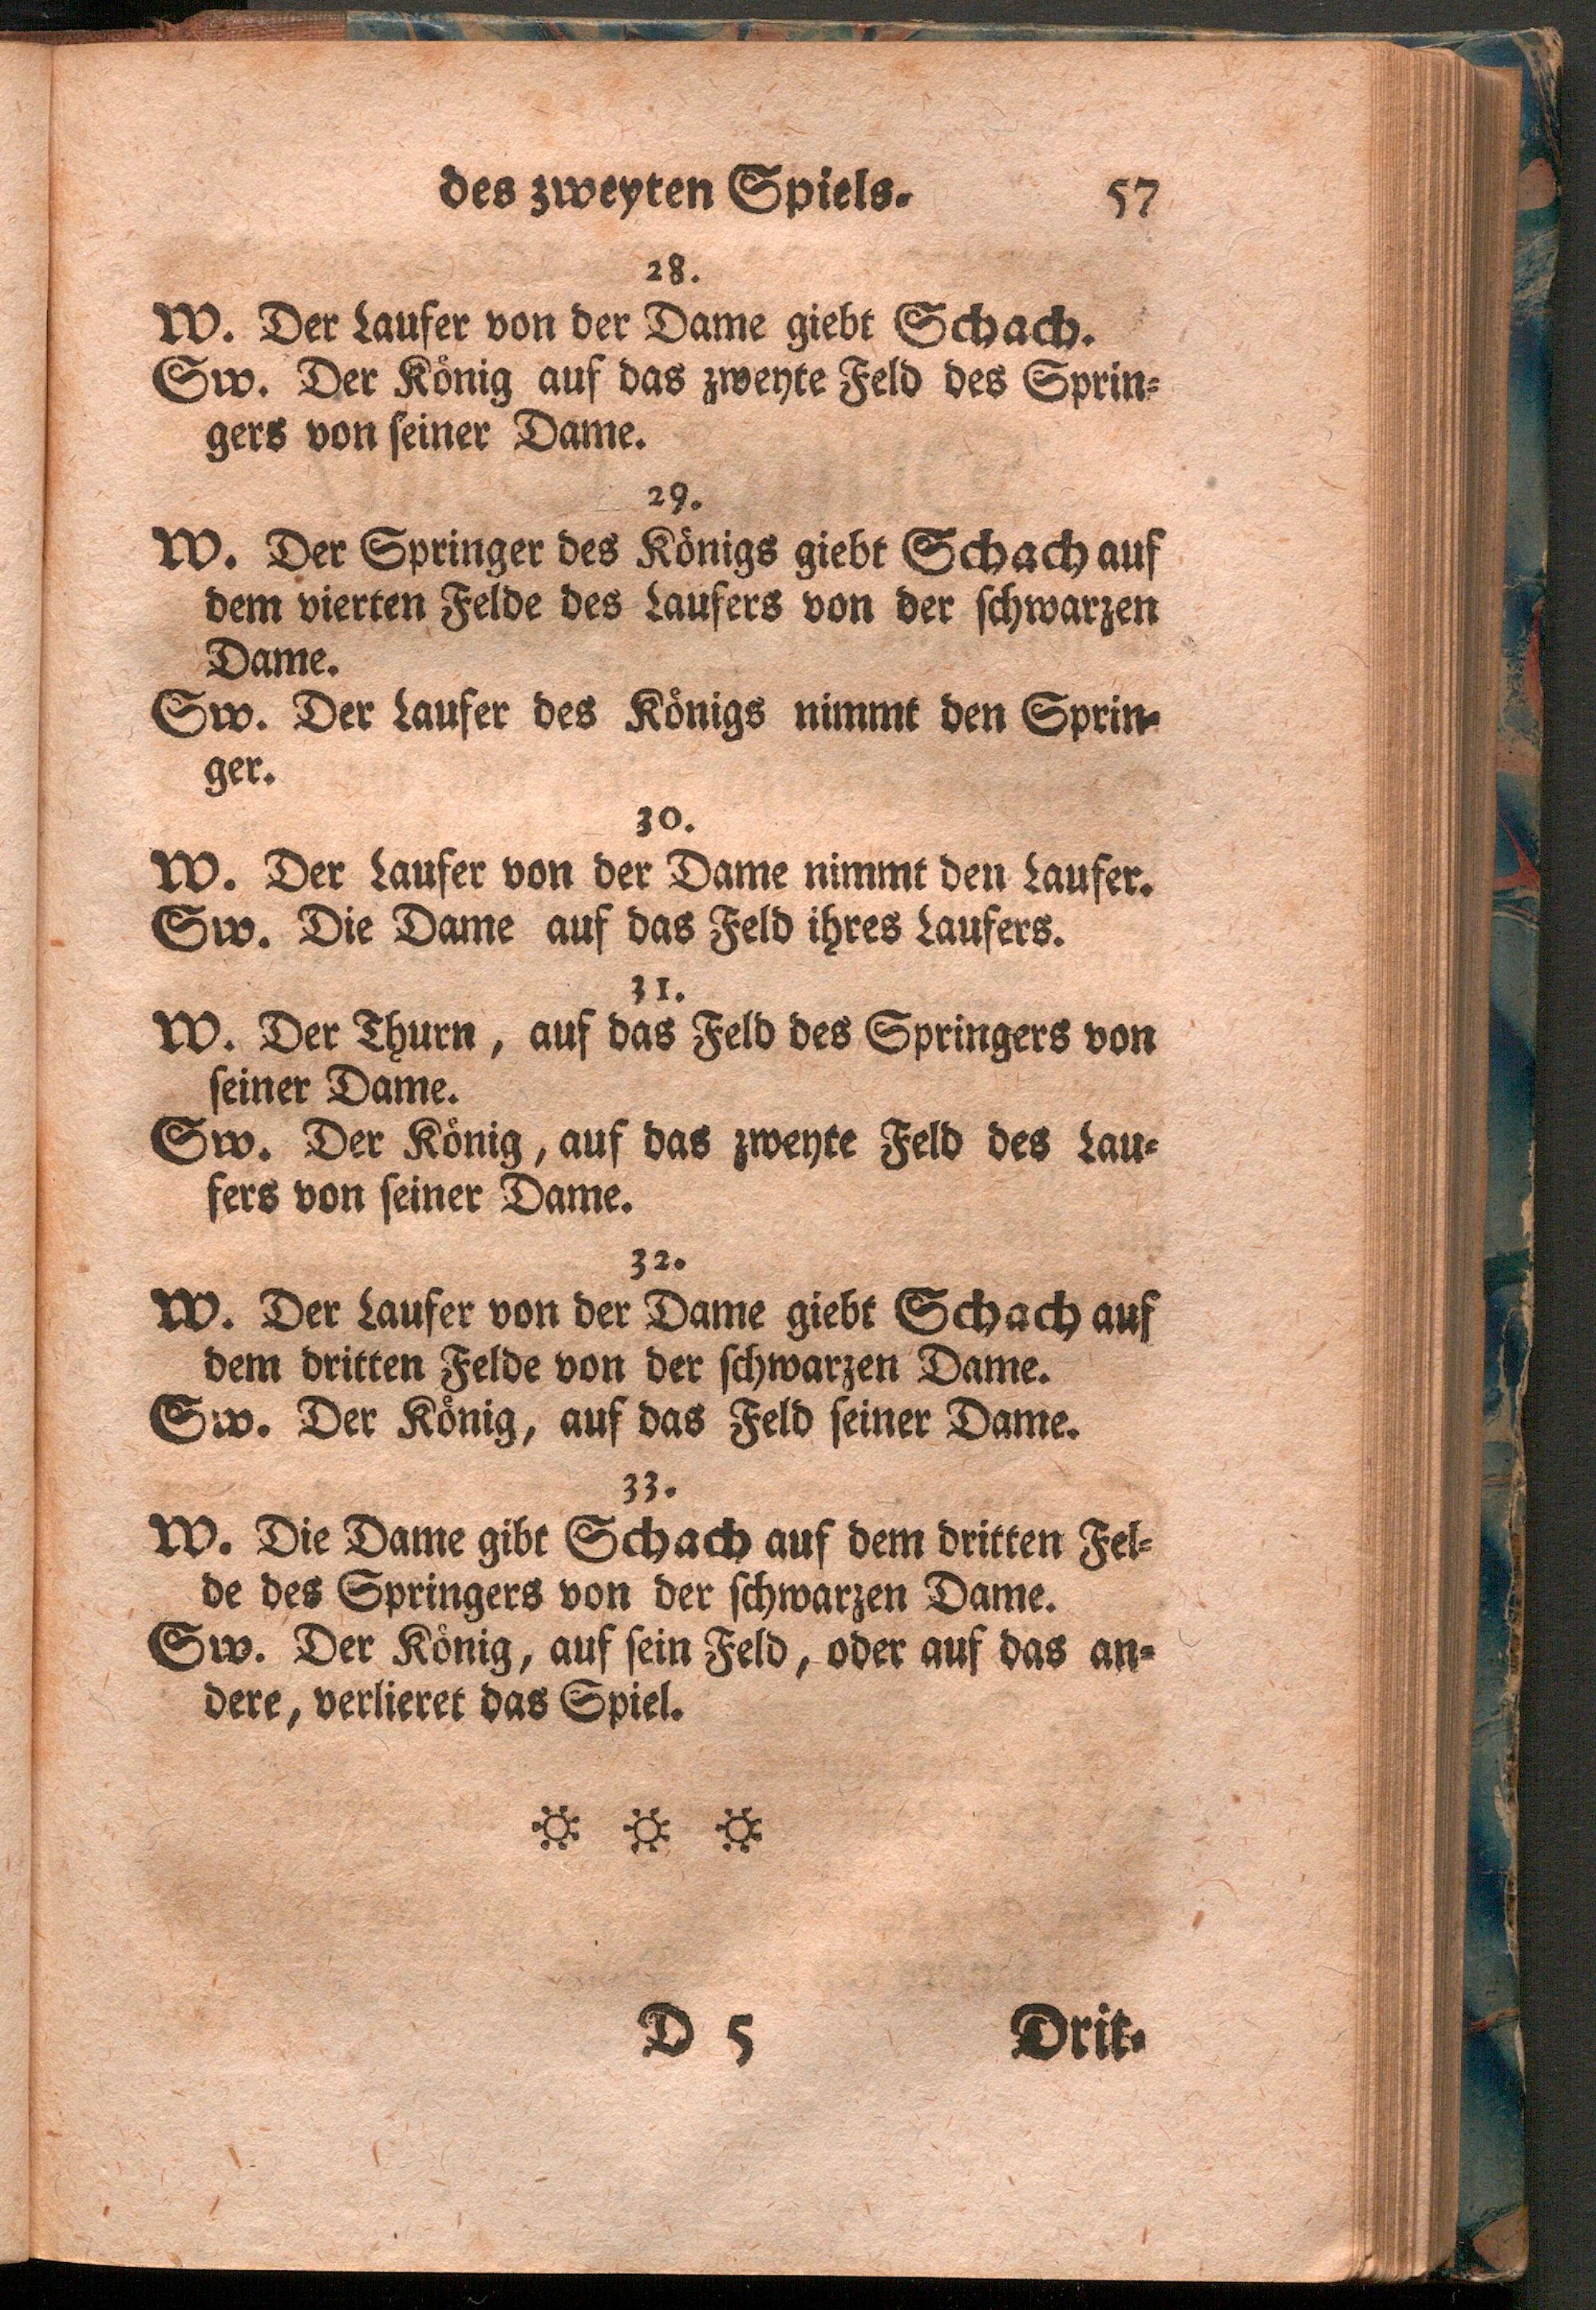 des zweyten Spiels. 57
28.
W. Der Laufer von der Dame giebt Schach.
Sw. Der König auf das zweyte Feld des Sprin⸗
gers von ſeiner Dame.
29.
W. Der Springer des Königs giebt Schach auf
dem vierten Felde des Laufers von der ſchwarzen
Dame.
Sw. Der Laufer des Königs nimmt den Sprin⸗
ger.
30.
W. Der Laufer von der Dame nimmt den Laufer.
Sw. Die Dame auf das Feld ihres Laufers.
31.
W. Der Thurn, auf das Feld des Springers von
ſeiner Dame.
Sw. Der König, auf das zweyte Feld des Lau⸗
fers von ſeiner Dame.
32.
W. Der Laufer von der Dame giebt Schach auf
dem dritten Felde von der ſchwarzen Dame.
Sw. Der König, auf das Feld ſeiner Dame.
33.
W. Die Dame gibt Schach auf dem dritten Fel⸗
de des Springers von der ſchwarzen Dame.
Sw. Der König, auf ſein Feld, oder auf das an⸗
dere, verlieret das Spiel.
D 5 Drit⸗